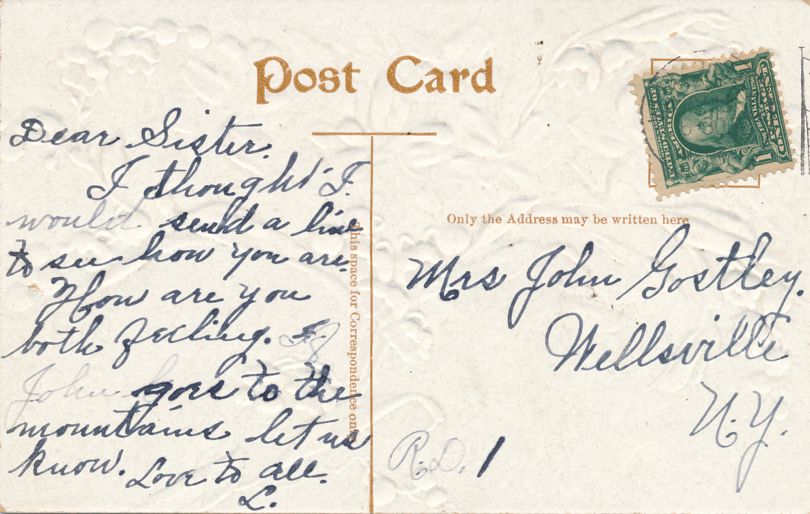 Post Card
Dear Sister.
I thought I
would send a line
to see how you are.
How are you
both feeling. If
John goes to the
mountains let us
know. Love to all.
L.
This space for Correspondence only
Only the Address may be written here
Mrs John Gostley.
Wellsville
N.Y.
R.D. 1
1 1